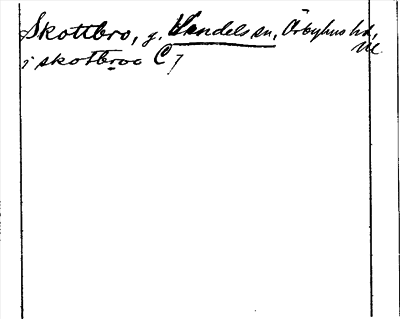 Skottbro, g. Vendels sn, Örbyhus hd,
Ul.
i skotbroo C7